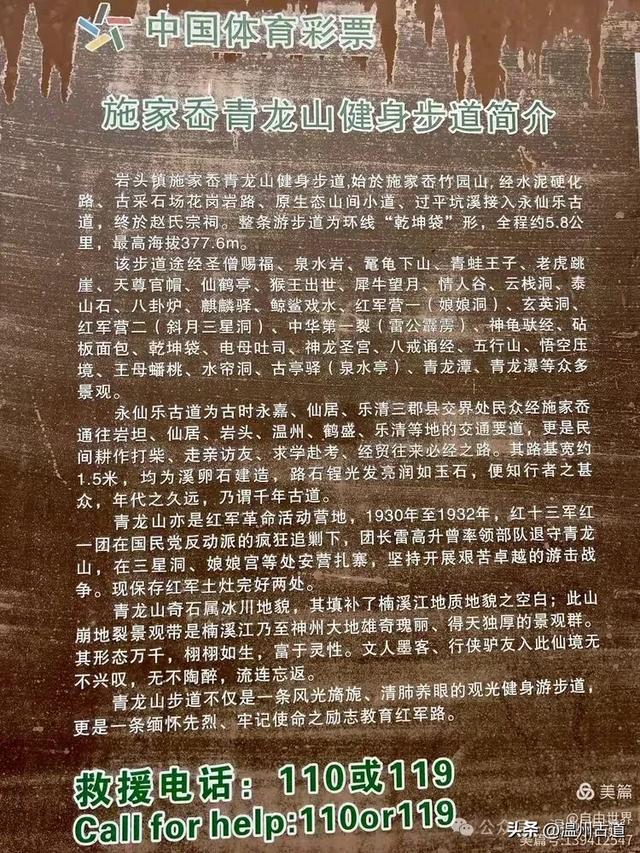 中国体育彩票
施家岙青龙山健身步道简介
岩头镇施家岙青龙山健身步道,始於施家岙竹园山, 经水泥硬化
路、古采石场花岗岩路、原生态山间小道、过平坑溪接入永仙乐古
道，终於赵氏宗祠。整条游步道为环线“乾坤袋”形，全程约5.8公
里，最高海拔377.6m。
该步道途经圣僧赐福、泉水岩、鼋龟下山、青蛙王子、老虎跳
崖、天尊官帽、仙鹤亭、猴王出世、犀牛望月、情人谷、云栈洞、泰
山石、八卦炉、麒麟驿、鲸鲨戏水、红军营一（娘娘洞）、玄英洞、
红军营二（斜月三星洞）、中华第一裂（雷公霹雳）、神龟驮经、砧
板面包、乾坤袋、电母吐司、神龙圣宫、八戒诵经、五行山、悟空压
境、王母蟠桃、水帘洞、古亭驿（泉水亭）、青龙潭、青龙瀑等众多
景观。
永仙乐古道为古时永嘉、仙居、乐清三郡县交界处民众经施家岙
通往岩坦、仙居、岩头、温州、鹤盛、乐清等地的交通要道，更是民
间耕作打柴、走亲访友、求学赴考、经贸往来必经之路。其路基宽约
1.5米，均为溪卵石建造，路石锃光发亮润如玉石，便知行者之甚
众，年代之久远，乃谓千年古道。
青龙山亦是红军革命活动营地，1930年至1932年，红十三军红
一团在国民党反动派的疯狂追剿下，团长雷高升曾率领部队退守青龙
山，在三星洞、娘娘宫等处安营扎寨，坚持开展艰苦卓越的游击战
争。现保存红军土灶完好两处。
青龙山奇石属冰川地貌，其填补了楠溪江地质地貌之空白；此山
崩地裂景观带是楠溪江乃至神州大地雄奇瑰丽、得天独厚的景观群。
其形态万千，栩栩如生，富于灵性。文人墨客、行侠驴友入此仙境无
不兴叹，无不陶醉，流连忘返。
青龙山步道不仅是一条风光旖旎、清肺养眼的观光健身游步道，
更是一条缅怀先烈、牢记使命之励志教育红军路。
救援电话：110或119
Call for help:110or119
美篇
@自由世界
头条 @温州古道
美篇号:139412547